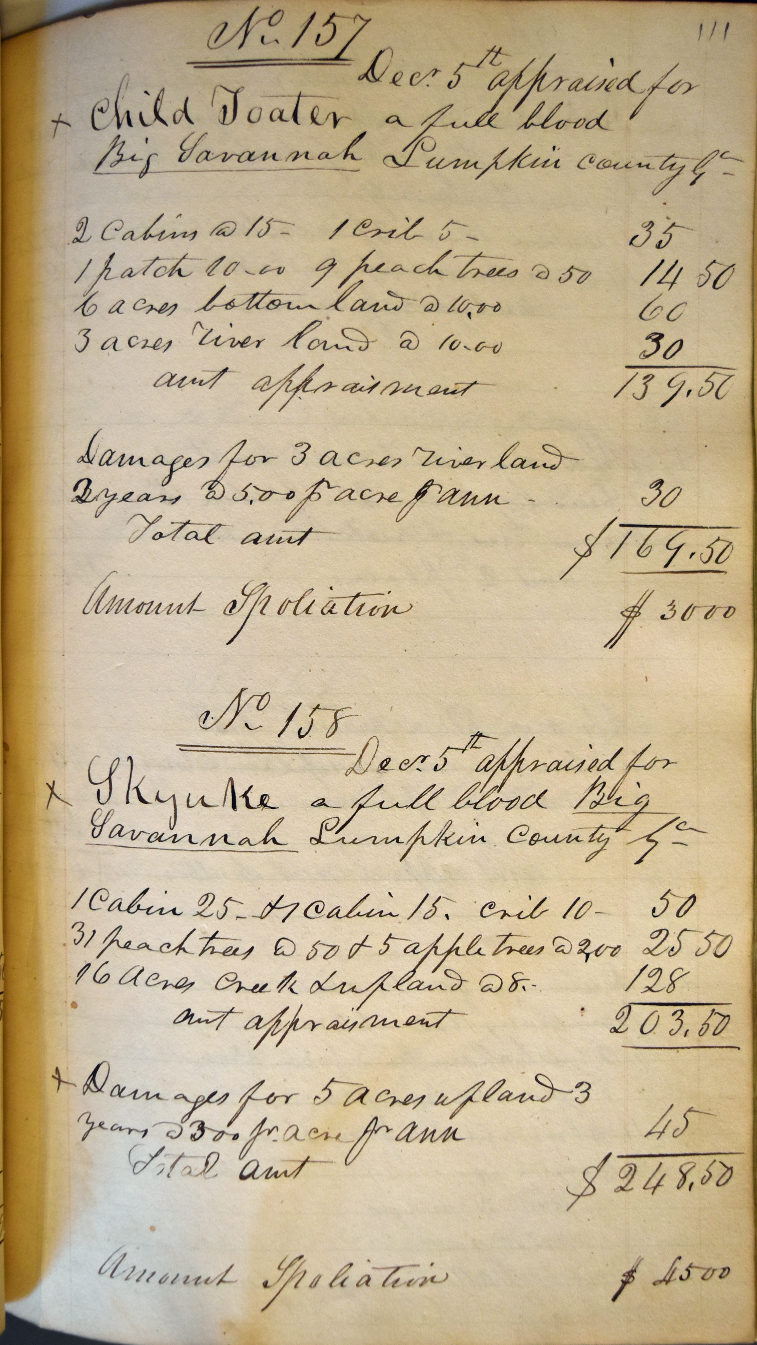 111
No. 157
Decr. 5th appraised for
+ Child Toater a full blood
Big Savannah Lumpkin county Ga
2 Cabins @ 15- 1 crib 5- 35
1 patch 10-00 9 peach trees @ 50 14 50
6 acres bottom land @ 10.00 60
3 acres river land @ 10.00 30
amt appraisment 139.50
Damages for 3 acres river land
2 years @ 5.00 pr acre pr ann - 30
Total amt $169.50
Amount Spoliation $ 3000
No. 158
Decr. 5th appraised for
+ Skyuke a full blood Big
Savannah Lumpkin County Ga
1 Cabin 25- & 1 Cabin 15. crib 10- 50
31 peach trees @ 50 & 5 apple trees @ 2,00 25 50
16 Acres Creek & upland @ 8.- 128
amt appraisment 203.50
+ Damages for 5 acres upland 3
years @ 300 pr. acre pr ann 45
Total amt $248.50
Amount Spoliation $ 4500